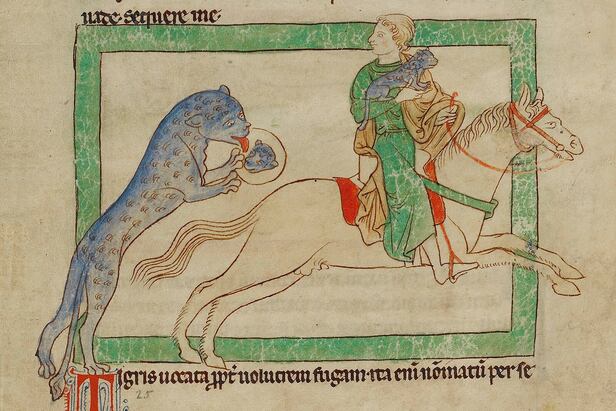 uade. sequere me.
Tigris uocata ꝓpt̃ uolucrem fugam. ita eni̅ no̅mat̃ per se
25